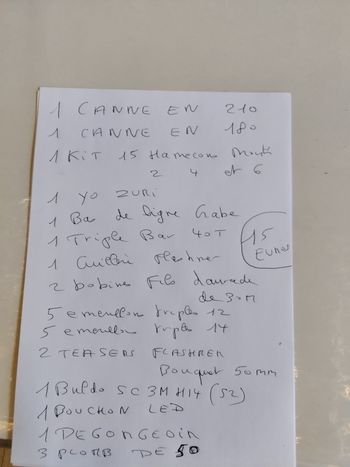 1 CANNE EN 210
1 CANNE EN 180
1 KIT 15 Hamecons
2 4 et 6
1 YO ZURI
1 Bas de ligne Crabe
1 Triple Bar 40T
15
EUROS
1 Cuillère Flashmer
2 bobines Fils daurade
de 30M
5 emerillons triples 12
5 emerillons triples 14
2 TEASERS FLASHMER
Bouquet 50mm
1 Buldo SC3MH14 (S2)
1 BOUCHON LED
1 DEGORGEOIR
3 PLOMB DE 50